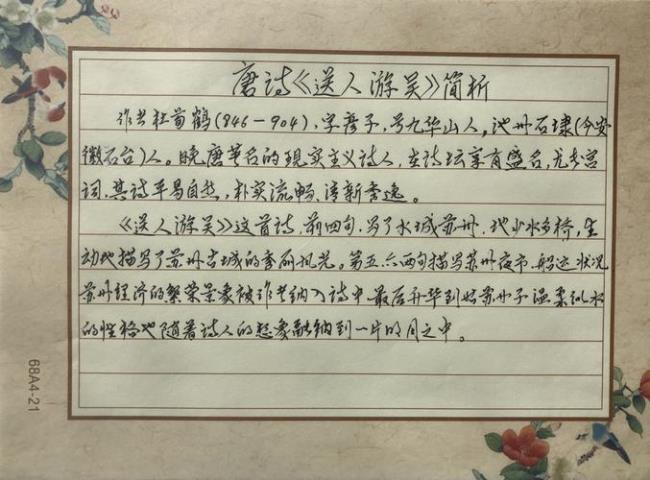 唐诗《送人游吴》简析
作者杜荀鹤(846-904),字彦之,号九华山人。池州石埭(今安
徽石台)人。晚唐著名的现实主义诗人,在诗坛享有盛名,尤长宫
词,其诗平易自然,朴实流畅,清新秀逸。
《送人游吴》这首诗,前四句,写了水城苏州,地少水多桥,生
动地描写了苏州古城的秀丽风光。第五、六两句描写苏州夜市、船运状况
苏州经济的繁荣景象被作者纳入诗中,最后升华到姑苏女子温柔似水
的性格也随着诗人的想象融纳到一片明月之中。
68A4-21